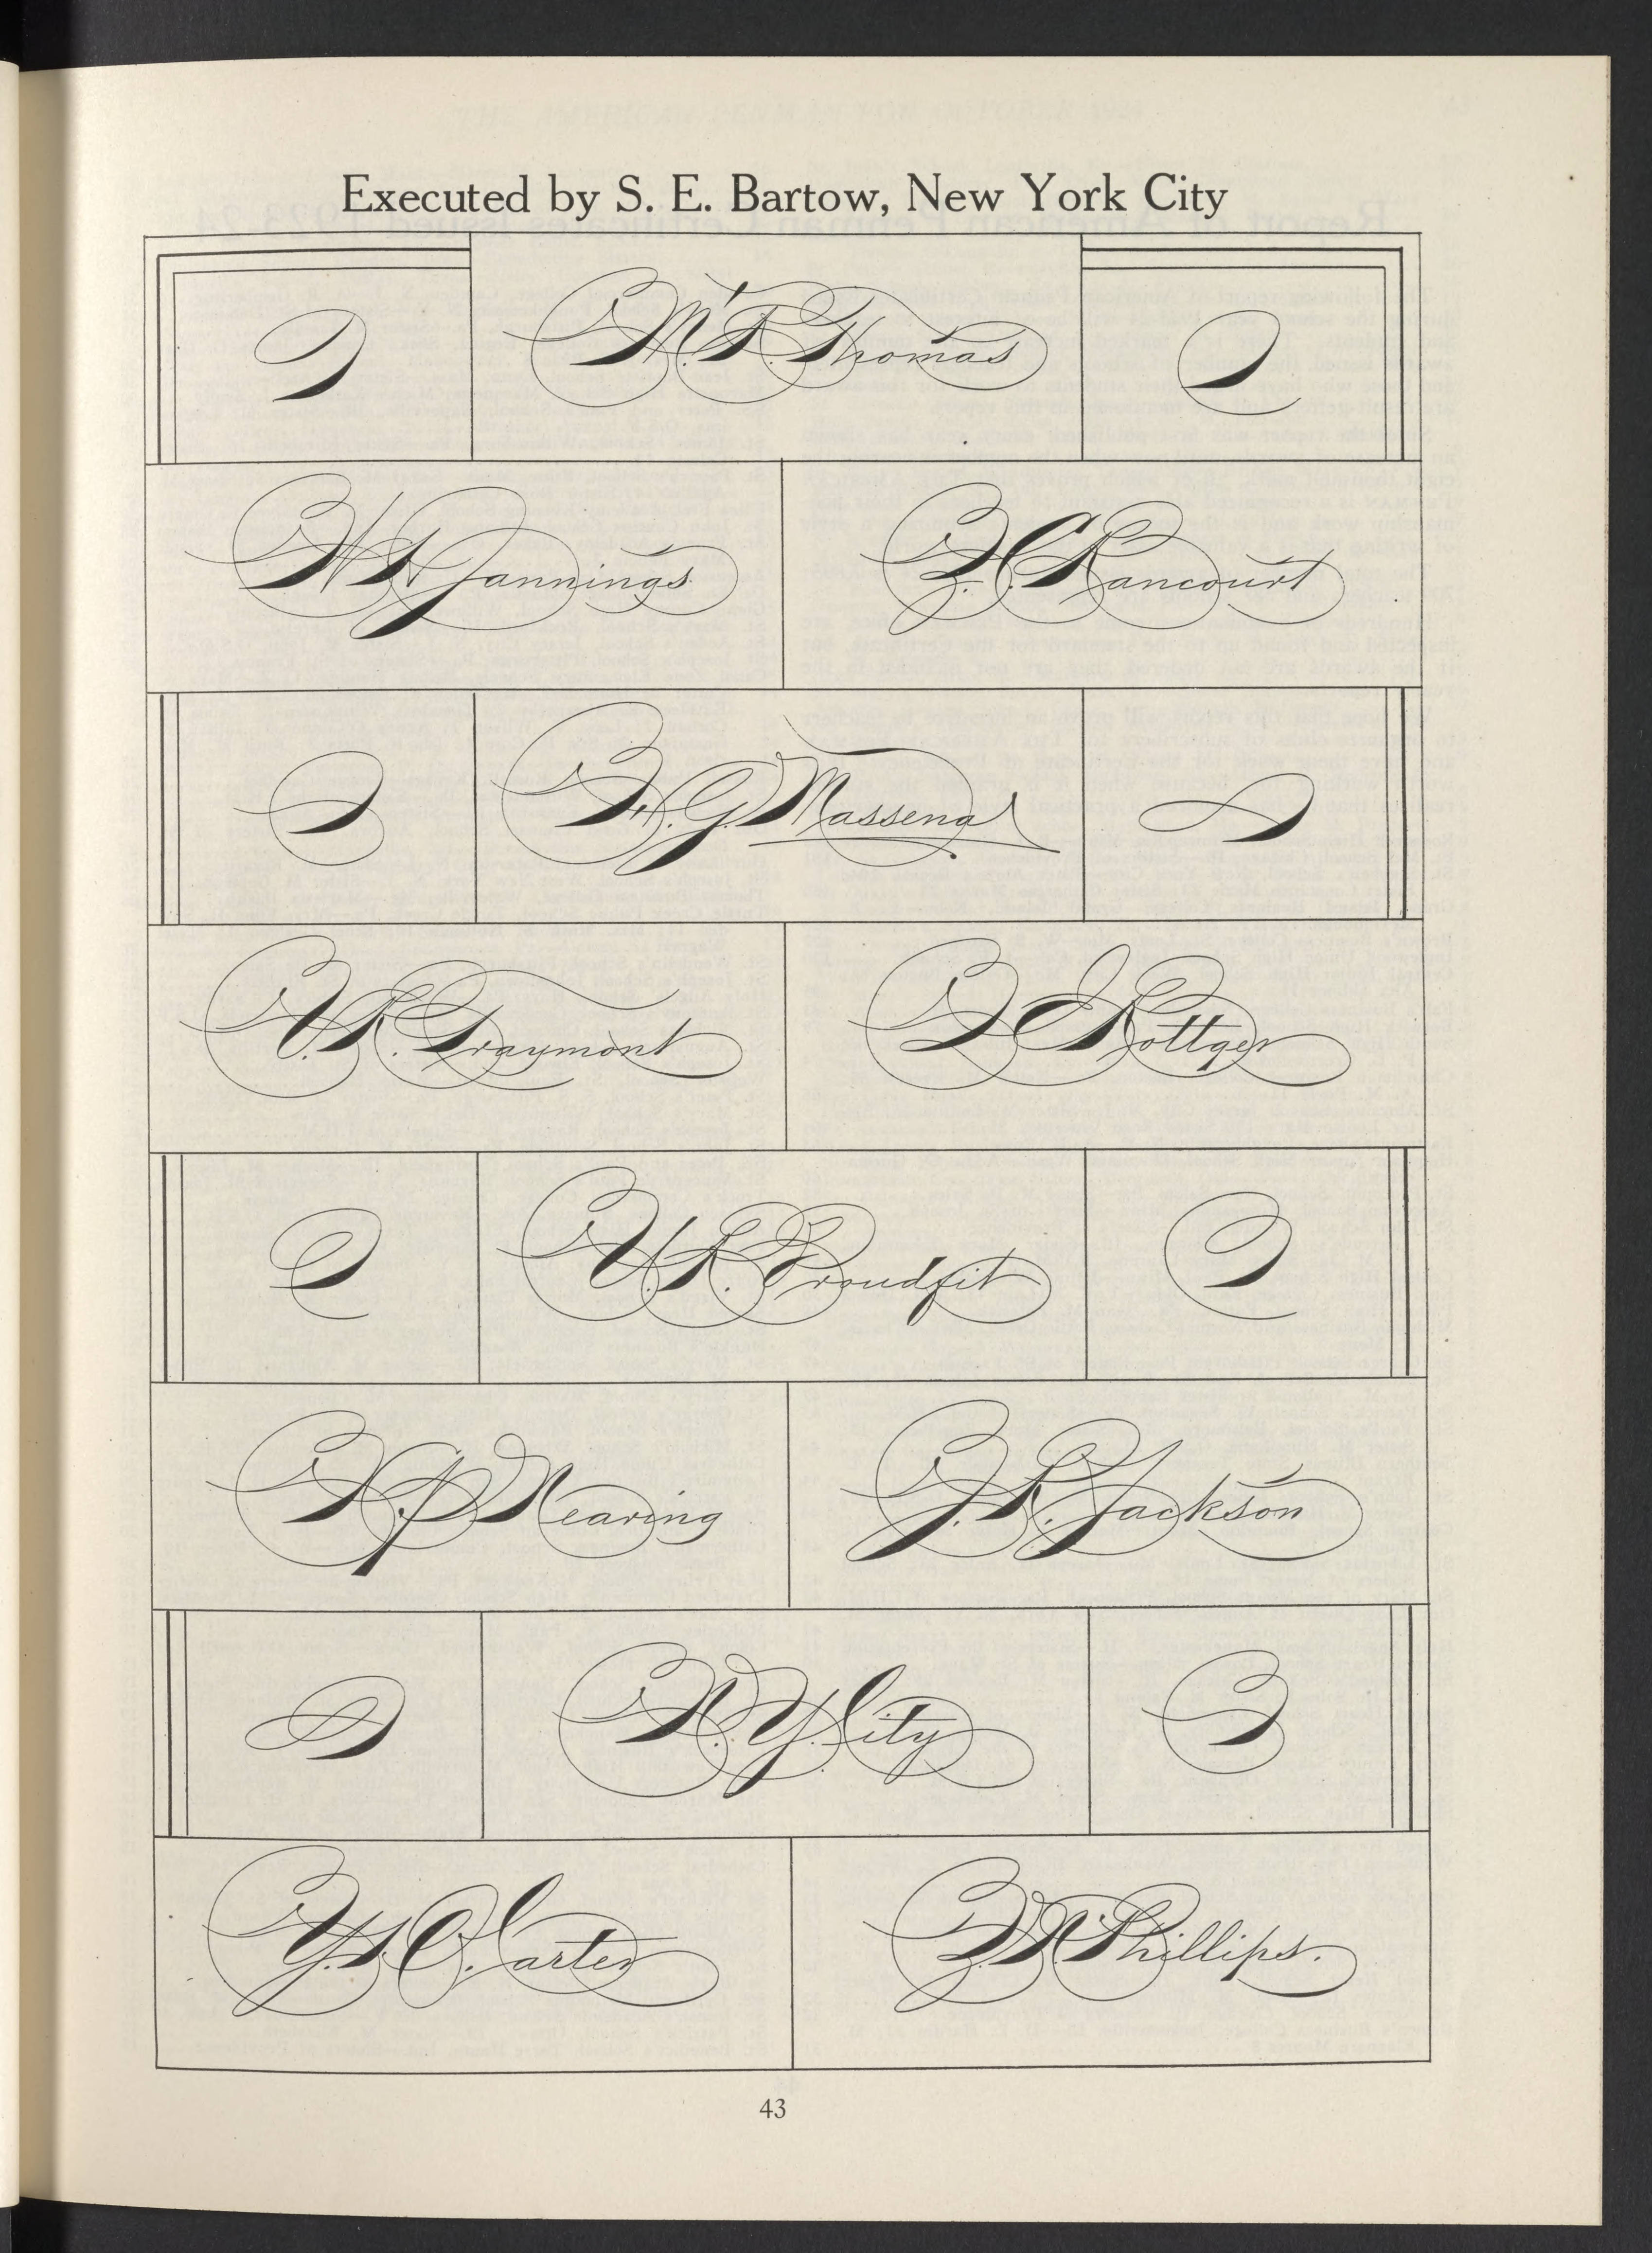 Executed by S. E. Bartow, New York City
M. T. Thomas
Jannings
Z. C. Rancourt
G. Massena
Traymont
Rottger
Proudfit
Nearing
J. R. Jackson
N. Y. City
Carter
Phillips.
43